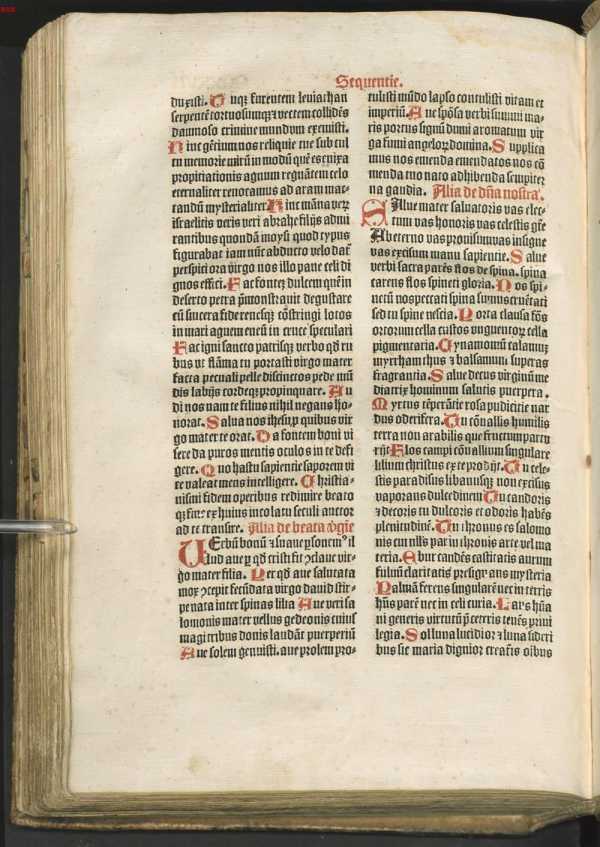 Sequentie.
duxisti. Tunqꝫ furentem leuiathan
serpentē tortuosumqꝫ ⁊ vectem collidēs
damnoso crimine mundum exemisti.
Hinc gētium nos reliquie tue sub cul
tu memorie mirū in modū quē es enixa
propitiationis agnum regnātem celo
eternaliter reuocamus ad aram mac⸗
tandū mysterialiter Hinc māna verꝝ
israelitis veris veri abrahe filijs admi
rantibus quondā moysi quod typus
figurabat iam nūc abducto velo dat᷑
perspici ora virgo nos illo pane celi di
gnos effici. Fac fontē dulcem quē in
deserto petra p̄monstrauit degustare
cū sincera fide renesqꝫ cōstringi lotos
in mari aguem eneū in cruce speculari
Fac igni sancto patrisqꝫ verbo qd̄ ru
bus vt flāma tu portasti virgo mater
facta pecuali pelle discinctos pede mū
dis labijs cordeqꝫ propinquare. Au
di nos nam te filius nihil negans ho⸗
norat. Salua nos ihesu pꝛo quibus vir
go mater te orat. Da fontem boni vi
sere da puros mentis oculos in te defi
gere. Quo haustu sapientie saporem vi
te valeat mens intelligere. Christia⸗
nismi fidem operibus redimire beato
qꝫ fine ex huius incolatu seculi auctor
ad te transire. Alia de beata v̄gīe
VErbū bonū ⁊ suaue ꝑsonem⁹ il
lud aue ꝑ qd̄ cristi fit ꝯclaue vir⸗
go mater filia. Per qd̄ aue salutata
mox ꝯcepit fecūdata virgo dauid stir⸗
pe nata inter spinas lilia Aue veri sa
lomonis mater vellus gedeonis cuius
magi tribus donis laudāt puerperiū
Aue solem genuisti. aue prolem pro⸗
tulisti mūdo lapso contulisti vitam et
imperiū. Aue spōsa verbi summi ma⸗
ris portus signū dumi aromatum vir
ga fumi angeloꝝ domina. Supplica
mus nos emenda emendatos nos cō
menda tuo nato ad habenda sempiter
na gaudia. Alia de dn̄a nostra.
SAlue mater saluatoris vas elec⸗
tum vas honoris vas celestis grē
Ab eterno vas prouisum vas insigne
vas excisum manu sapientie. Salue
verbi sacra parēs flos de spina. spina
carens flos spineti gloria. Nos spi⸗
netū nos peccati spina sumus cruētati
sed tu spine nescia. Porta clausa fōs
ortorum cella custos vnguentoꝝ cella
pigmentaria. Cynamomū calamum
myrrham thus ⁊ balsamum superas
fragrantia. Salue decus virginū me
diatrix hominum salutis puerpera.
Myrtus tēperātie rosa pudicitie nar
dus odorifera. Tu cōuallis humilis
terra non arabilis que fructum partu
rijt Flos campi cōuallium singulare
lilium christus ex te prodijt. Tu cele⸗
stis paradisus libanusqꝫ non excisus
vaporans dulcedinem Tu candoris
⁊ decoris tu dulcoris et odoris habes
plenitudinē. Tu thronus es salomo
nis cui null⁹ par in thronis arte vel ma
teria. Ebur candēs castitatis aurum
fuluū claritatis presignans mysteria
Palmā ferens singularē nec in terris
habēs parē nec in celi curia. Laus hūa
ni generis virtutū p̄ ceteris tenēs priui
legia. Sol luna lucidior ⁊ luna sideri
bus sic maria dignior creatis oībus